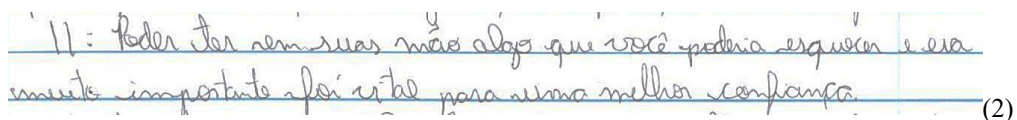 11: Poder ter em suas mão algo que você poderia esquecer e era
muito importante foi vital para uma melhor confiança.
(2)